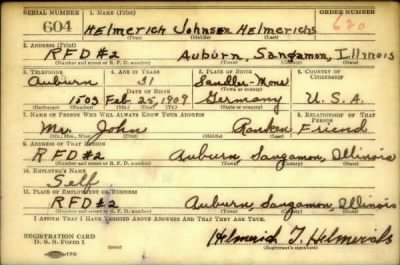 SERIAL NUMBER 1. NAME (Print) ORDER NUMBER
604 Helmerich Johnsen Helmerichs 620
(First) (Middle) (Last)
2. ADDRESS (Print)
RFD #2 Auburn, Sangamon, Illinois
(Number and street or R. F. D. number) (Town) (County) (State)
3. TELEPHONE 4. AGE IN YEARS 5. PLACE OF BIRTH 6. COUNTRY OF CITIZENSHIP
Auburn 31
DATE OF BIRTH (Town or county)
1503 Feb. 25, 1909 Germany U.S.A.
(Exchange) (Number) (Mo.) (Day) (Yr.) (State or country)
7. NAME OF PERSON WHO WILL ALWAYS KNOW YOUR ADDRESS 8. RELATIONSHIP OF THAT PERSON
Mr. John Friend
(Mr., Mrs., Miss) (First) (Middle) (Last)
9. ADDRESS OF THAT PERSON
RFD #2 Auburn Sangamon, Illinois
(Number and street or R. F. D. number) (Town) (County) (State)
10. EMPLOYER'S NAME
Self
11. PLACE OF EMPLOYMENT OR BUSINESS
RFD #2 Auburn Sangamon, Illinois
(Number and street or R. F. D. number) (Town) (County) (State)
I AFFIRM THAT I HAVE VERIFIED ABOVE ANSWERS AND THAT THEY ARE TRUE.
REGISTRATION CARD
D. S. S. Form 1 Helmerich J. Helmerichs
(Registrant's signature)